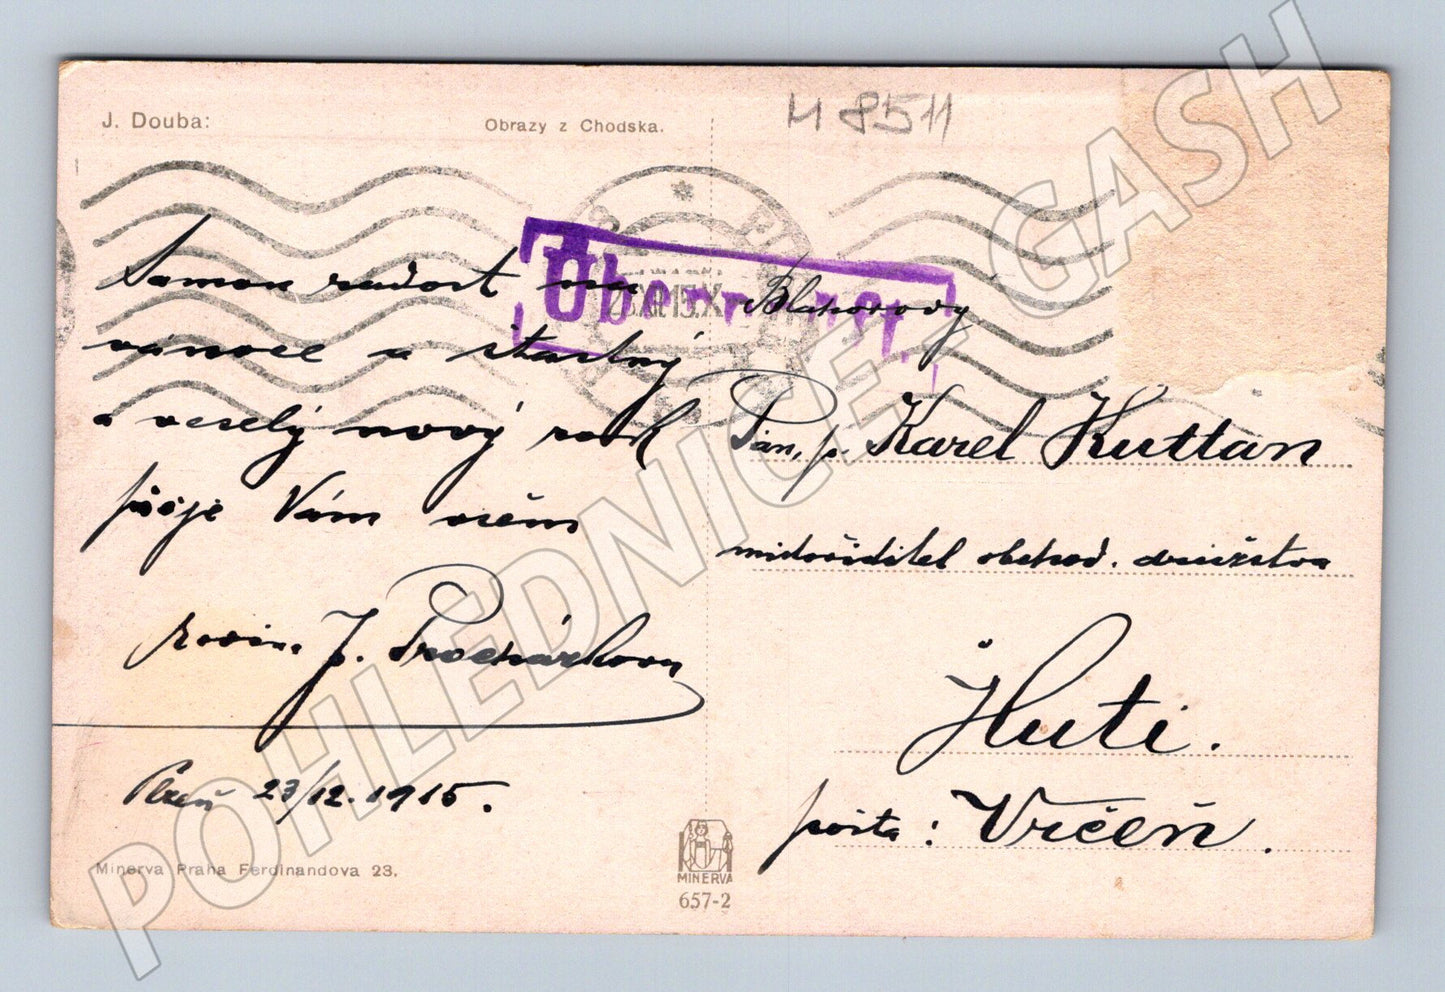 J. Douba:
Obrazy z Chodska.
H 8511
Überprüft.
Samou radost na
vánoce a šťastný
a veselý nový rok
přeje Vám všem
rodina J. Procházkova
Plzeň 23/12. 1915.
Blahorovy
Pan, p. Karel Kuttan
místořiditel obchod. družstva
Hutí.
pošta: Vrčeň.
Minerva Praha Ferdinandova 23.
MINERVA
657-2
POHLEDNICE - GASH